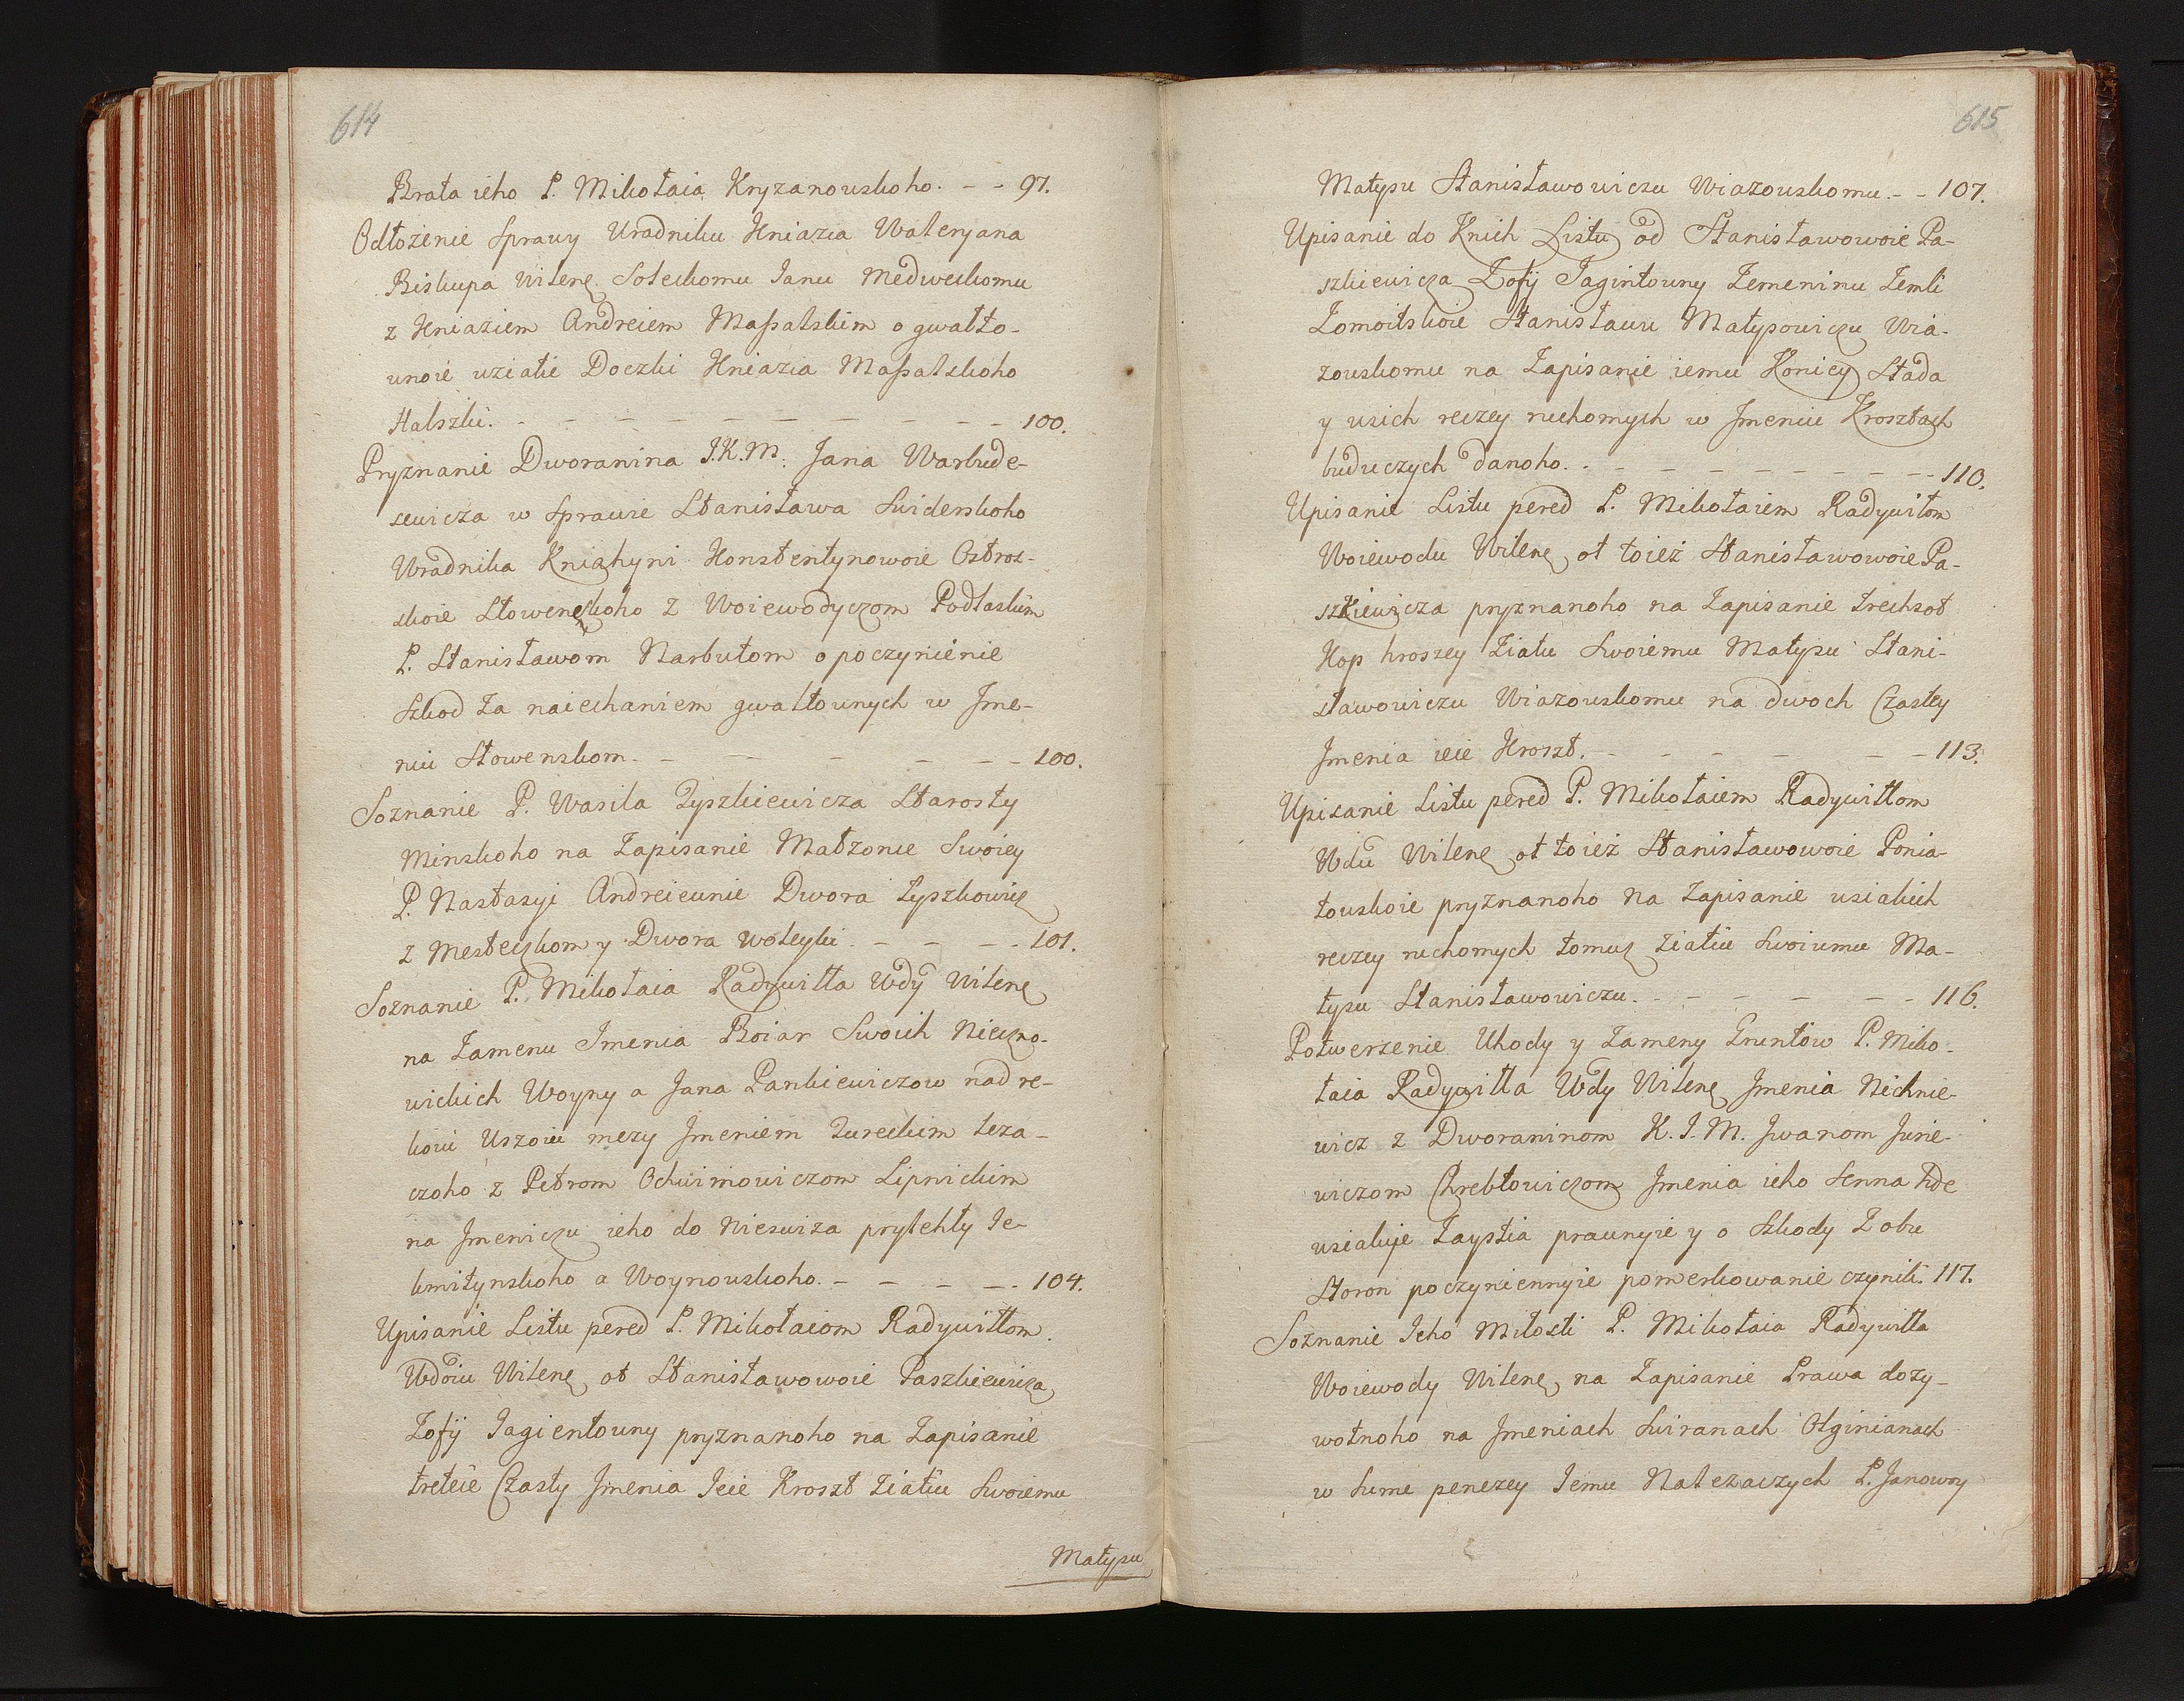 614
Brata ieho P. Mikołaia Kryzanouskoho. - - 97.
Odłożenie Sprawy Uradniku Kniazia Waleryana
Biskupa Wilenę Soleckomu Ianu Medweckomu
z Kniaziem Andreiem Maßalskim o gwałto-
wnoie uziatie Doczki Kniazia Maßalskoho
Halszki. - - - - - - - - - - - 100.
Pryznanie Dworanina J.K.M. Jana Warbude-
sewicza w Sprawie Stanisława Swiderskoho
Uradnika Kniahyni Konstentynowoie Ostroz-
skoie Słowenęskoho z Woiewodyczom Podlaskim
P. Stanisławom Narbutom o poczynienie
Szkod za naiechaniem gwałtownych w Jme-
niu Słowenskom. - - - - - - 100.
Soznanie P. Wasila Tyszkiewicza Starosty
Minskoho na Zapisanie Małzonce Swoiey
P. Nastasyi Andreiewnie Dwora Łyszkowic
z Mesteczkom y Dwora Woleyki. - - - - 101.
Soznanie P. Mikołaia Radywiłła Wdy Wilenę
na Zamenu Imenia Boiar Swoich Niechno-
wickich Woyny a Jana Pankiewiczow nad re-
koiu Uszoiu mezy Jmeniem Tureckim leza-
czoho z Petrom Ochwimowiczom Lipnickim
na Jmeniczu ieho do Nieswiza prylehły Je-
kmitynskoho a Woynouskoho. - - - - - 104.
Upisanie Listu pered P. Mikołaiom Radywiłłom
Wdoiu Wilenę ot Stanisławowoie Paszkiewicza
Zofij Iagientowny pryznanoho na Zapisanie
treteie Czasty Jmenia Ieie Kroszt Ziatiu Swoiemu
Matysu
615
Matysu Stanisławowiczu Wiazouskomu. - - 107.
Upisanie do Knich Listu od Stanisławowoie Pa-
szkiewicza Zofij Jagintowny Zemeninu Zemli
Zomoitskoie Stanisławu Matysowiczu Wia-
zouskomu na Zapisanie iemu Koniey Stada
y usich reczey ruchomych w Jmeniu Krosztach
buduczych danoho. - - - - - - - - - 110.
Upisanie Listu pered P. Mikołaiem Radywiłom
Woiewodu Wilenę ot toież Stanisławowoie Pa-
szkiewicza pryznanoho na Zapisanie trechsot
Kop hroszey Ziatu Swoiemu Matysu Stani-
sławowiczu Wiazouskomu na dwoch Czastey
Jmenia ieie Kroszt. - - - - - - 113.
Upisanie Listu pered P. Mikołaiem Radywiłłom
Wdu Wilenę ot toież Stanisławowoie Ponia-
towskoie pryznanoho na Zapisanie usiakich
reczey ruchomych tomuz Ziatiu Swoiumu Ma-
tysu Stanisławowiczu. - - - - - - 116.
Potwerzenie Uhody y Zameny Gruntów P. Miko-
łaia Radywiłła Wdy Wilenę Jmenia Nichnie-
wicz z Dworaninom K.J.M. Jwanom Jurie-
wiczom Chrebtowiczom Jmenia ieho Senna hde
usiakije Zaystia prawnyie y o Szkody z obu
Storon poczyniennyie pomerkowanie czynili. 117.
Soznanie Jeho Miłosti P. Mikołaia Radywiłła
Woiewody Wilenę na Zapisanie Prawa dozy-
wotnoho na Jmeniach Swiranach Olginianach
w Sume penezey Iemu Nalezaczych P. Janowoy